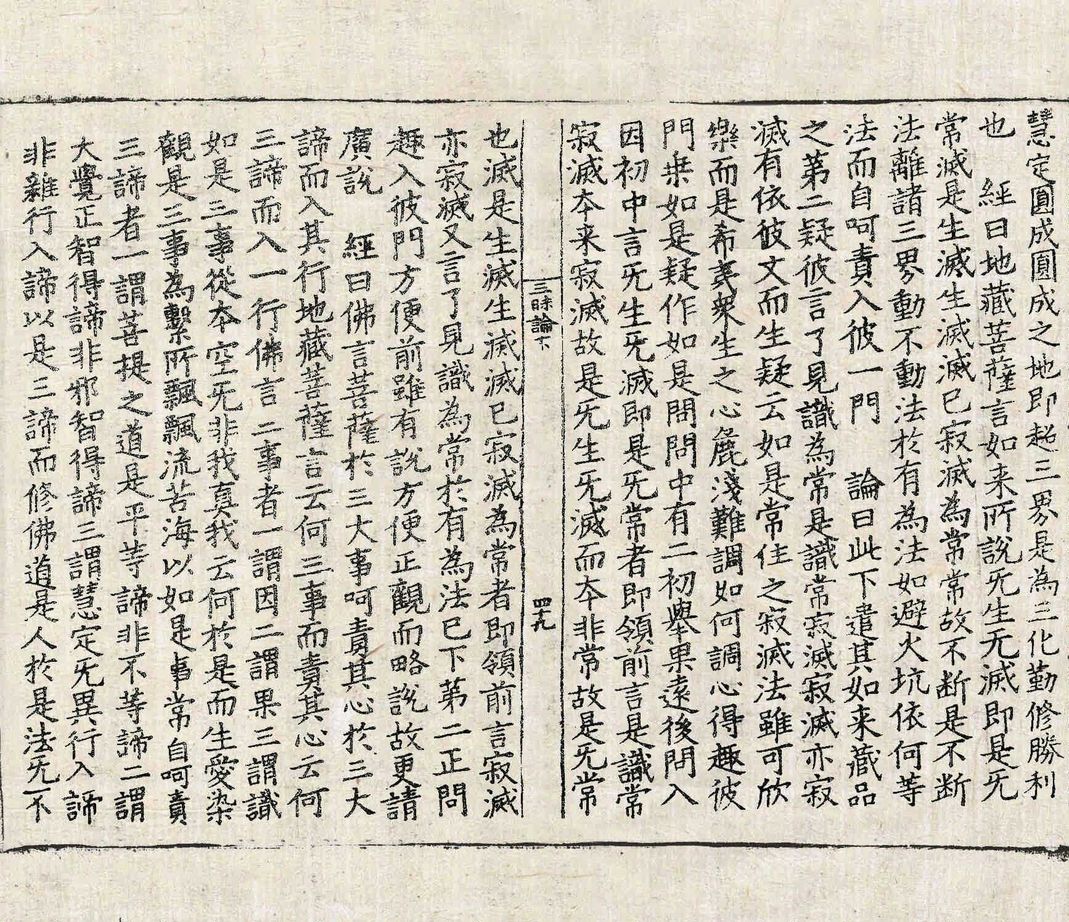 慧定圓成圓成之地即超三界是為三化勤修勝利
也　經曰地藏菩薩言如来所說旡生旡滅即是旡
常滅是生滅生滅滅已寂滅為常常故不断是不断
法離諸三界動不動法於有為法如避火坑依何等
法而自呵責入彼一門　論曰此下遣其如来藏品
之第二疑彼言了見識為常是識常寂滅寂滅亦寂
滅有依彼文而生疑云如是常住之寂滅法雖可欣
樂而是希夷衆生之心麁淺難調如何調心得趣彼
門乗如是疑作如是問問中有二初舉果遠後問入
因初中言旡生旡滅即是旡常者即領前言是識常
寂滅夲来寂滅故是旡生旡滅而夲非常故是旡常
三昧論下
四十九
也滅是生滅生滅滅已寂滅為常者即領前言寂滅
亦寂滅又言了見識為常於有為法已下第二正問
趣入彼門方便前雖有說方便正觀而略說故更請
廣說　經曰佛言菩薩於三大事呵責其心於三大
諦而入其行地藏菩薩言云何三事而責其心云何
三諦而入一行佛言三事者一謂因二謂果三謂識
如是三事從夲空旡非我真我云何於是而生愛染
觀是三事為繫所飄飄流苦海以如是事常自呵責
三諦者一謂菩提之道是平等諦非不等諦二謂
大覺正智得諦非邪智得諦三謂慧定旡異行入諦
非雜行入諦以是三諦而修佛道是人於是法旡不